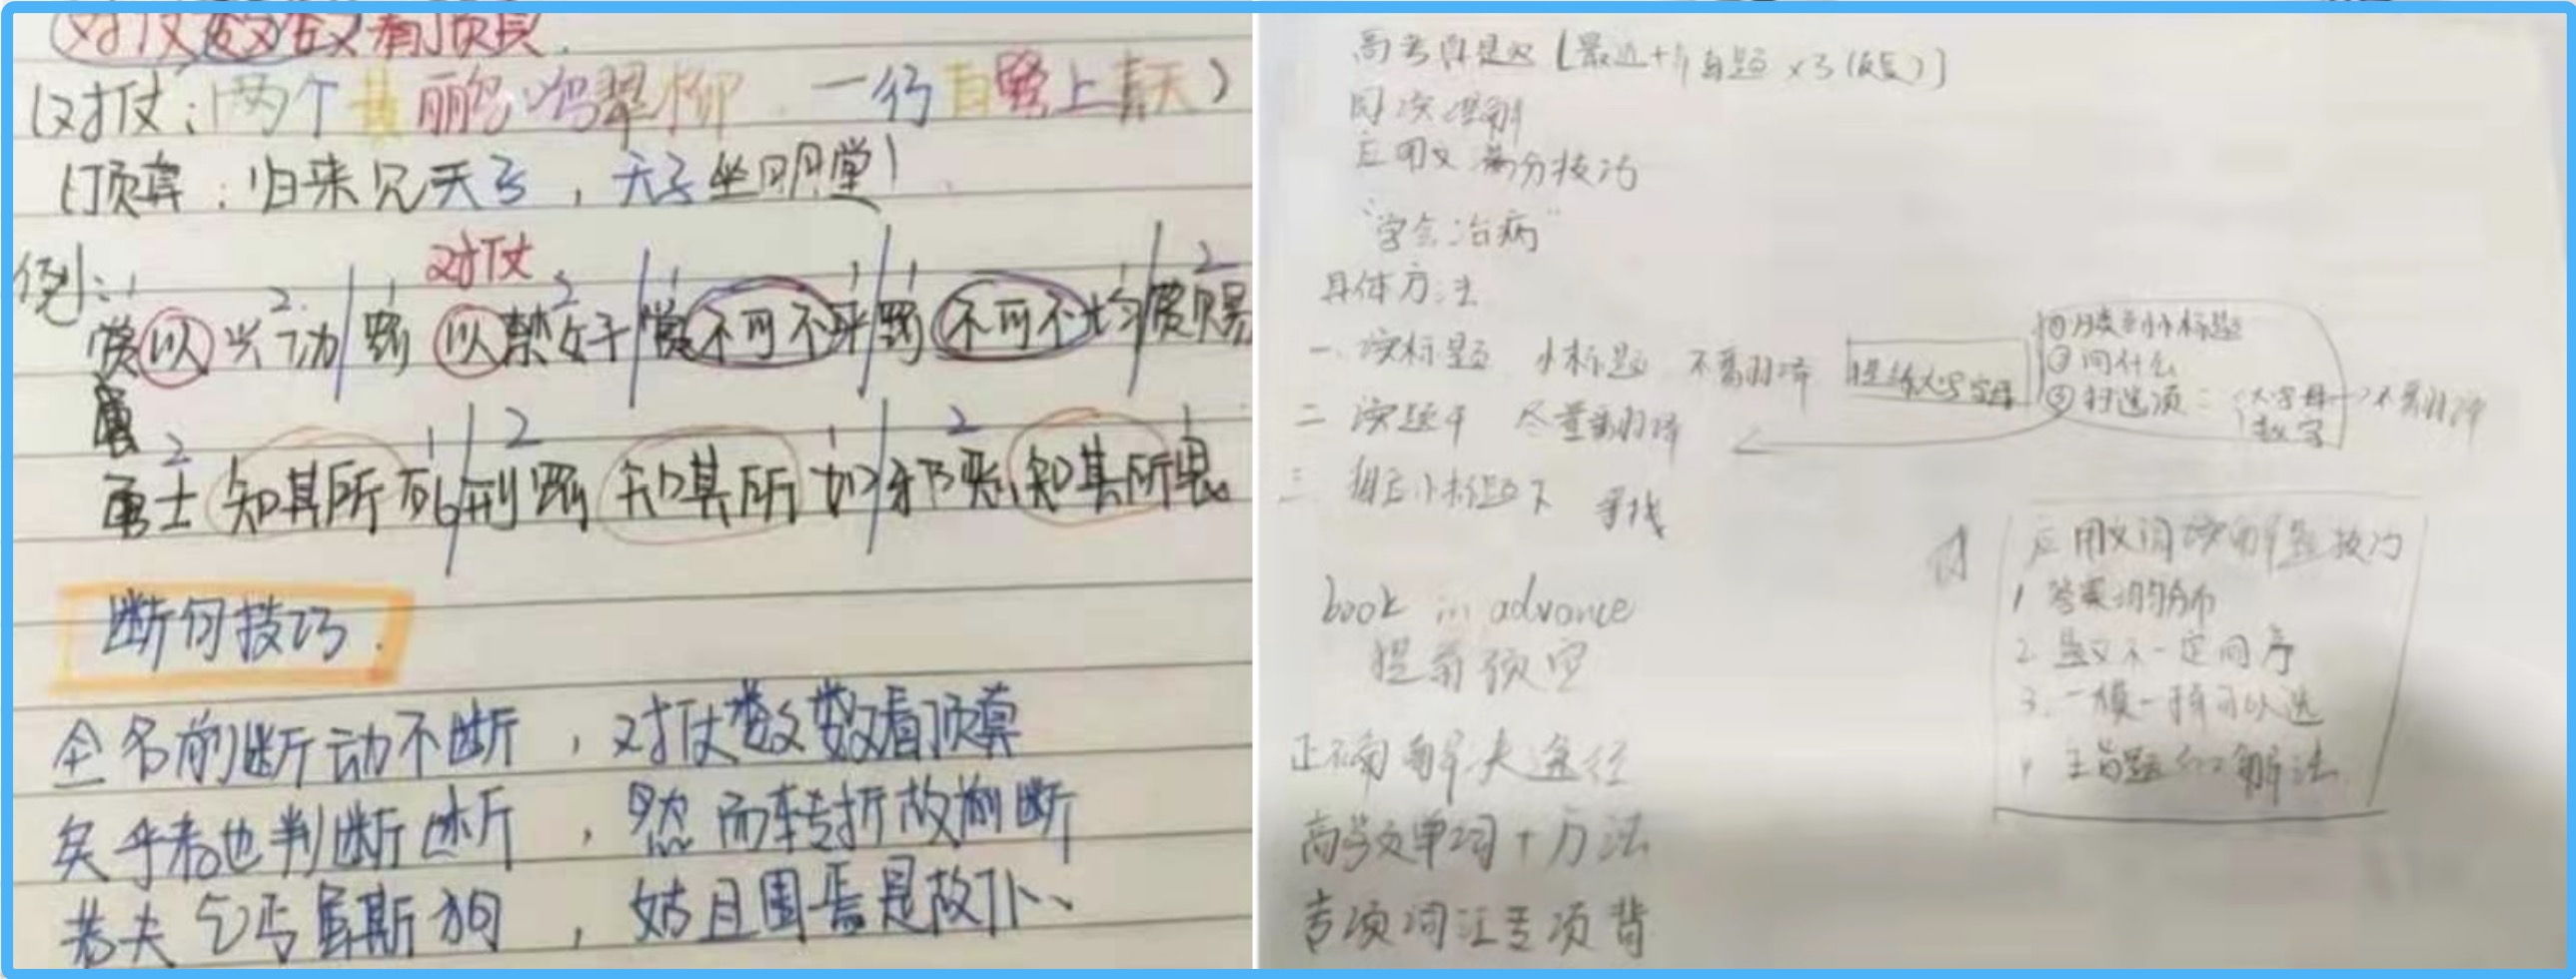 对仗数数看顶真.
(对仗:两个黄丽鸟鸣翠柳 一行白鹭上青天)
(顶真:归来见天子,天子坐明堂)
例:
对仗
赏以兴功 罚以禁奸 赏不可不平 罚不可不均 赏赐
勇士知其所死 刑罚知其所加 邪恶知其所畏
断句技巧.
全名前断动不断,对仗数数看顶真
矣乎者也判断断,然而转折故前断
若夫
高考真题 [最近十年真题×3(反复)]
阅读理解
应用文 满分技巧
"学会治病"
具体方法
一、读标题 小标题 不翻译
①分类到小标题
②问什么
③扫选项: 大字母→不翻译
数字
二 读题干 尽量翻译
三 小标题下 寻找
book in advance
提前预定
正确解决途径
高频单词+方法
专项词汇专项背
应用文阅读解题技巧
1 答案均匀分布
2 题文不一定同序
3. 一模一样可以选
4 主旨题 解法